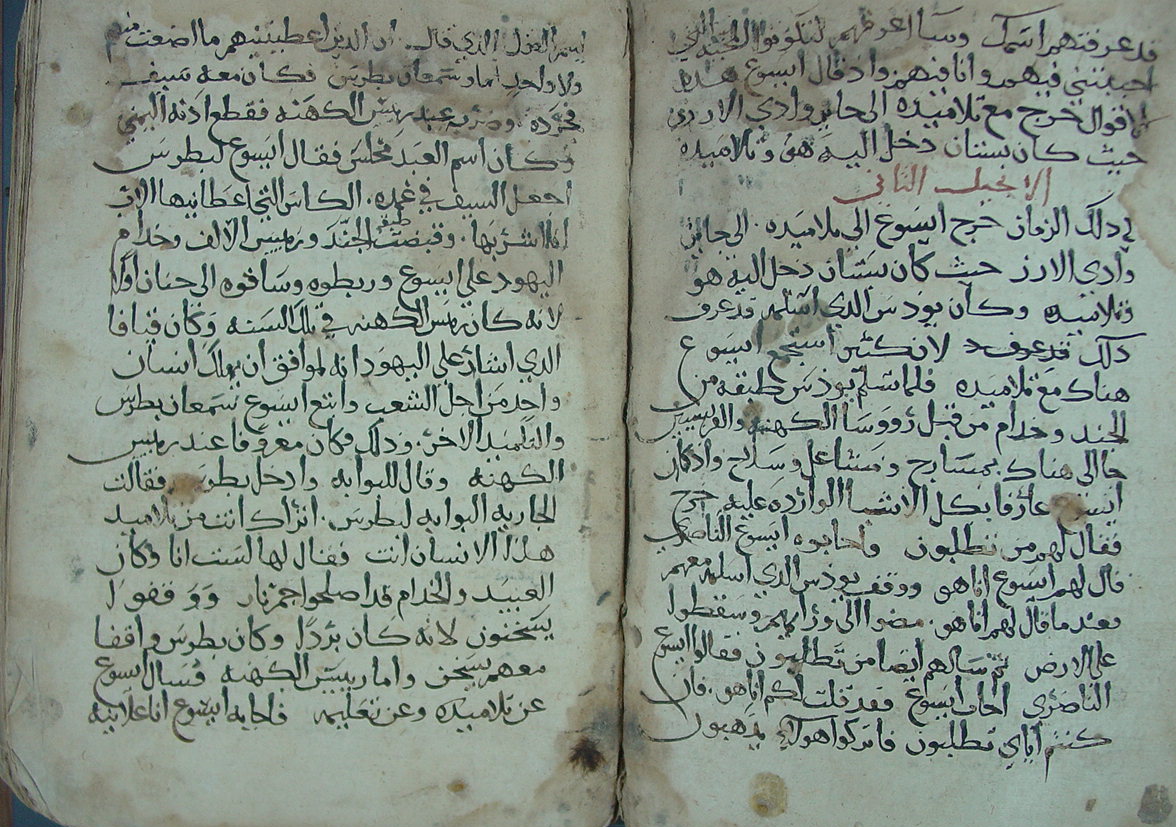 قد عرفتهم اسمك وسا اعرفهم لتكونوا المحبه التي
احببتني فيهم وانا فيهم واذ قال ايسوع هذه
الاقوال خرج مع تلاميذه الى حابر وادي الارز
حيث كان بستان دخل اليه هو وتلاميذه
الانجيل الثاني
في ذلك الزمان خرج ايسوع الى تلاميذه. الى حابر
وادي الارز حيث كان بستان دخل اليه هو
وتلاميذه وكان يودس الذي اسلمه قد عرف
ذلك لان كثير استجمع ايسوع
هناك مع تلاميذه فلما تسلم يودس طبقه من
الجند وخدام من قبل رووسا الكهنه والفريسيين
جا الى هناك بمصابيح ومشاعل وسلاح واذ كان
ايسوع عارفا بكل الاشيا الوارده عليه خرج
فقال لهم من تطلبون واجابوه ايسوع الناصري
قال لهم ايسوع انا هو ووقف يودس الذي اسلمه معهم
فعند ما قال لهم انا هو. مضوا الى ورايهم وسقطوا
على الارض ثم سالهم ايضا من تطلبون فقالوا ايسوع
الناصري اجاب ايسوع فقد قلت لكم انا هو. فان
كنتم اياي تطلبون فاتركوا هولاء يذهبون
ليتم القول الذي قال ان الذين اعطيتنيهم ما اضعت منهم
ولا واحد اما سمعان بطرس فكان معه سيف
فجرده وضرب عبد ريس الكهنه فقطع اذنه اليمنى
وكان اسم العبد ملخس فقال ايسوع لبطرس
اجعل السيف في غمده. الكاس التي اعطانيها الاب
اما اشربها. وقبضت الجند ورييس الالف وخدام
اليهود على ايسوع وربطوه وساقوه الى حنان اولا
لانه كان ريس الكهنه في تلك السنه وكان قيافا
الذي اشار علي اليهود انه لموافق ان يهلك انسان
واحد من اجل الشعب واتبع ايسوع سمعان بطرس
والتلميذ الاخر. وذلك فكان معروفا عند رييس
الكهنه وقال للبوابه وادخل بطرس فقالت
الجاريه البوابه لبطرس. اتراك انت من تلاميد
هذا الانسان انت فقال لها لست انا وكان
العبيد والخدام قد اصلحوا جمر نار ووقفوا
يسخنون لانه كان بردا وكان بطرس واقفا
معهم يسخن واما رييس الكهنه فسال ايسوع
عن تلاميذه وعن تعليمه فاجابه ايسوع انا علانيه